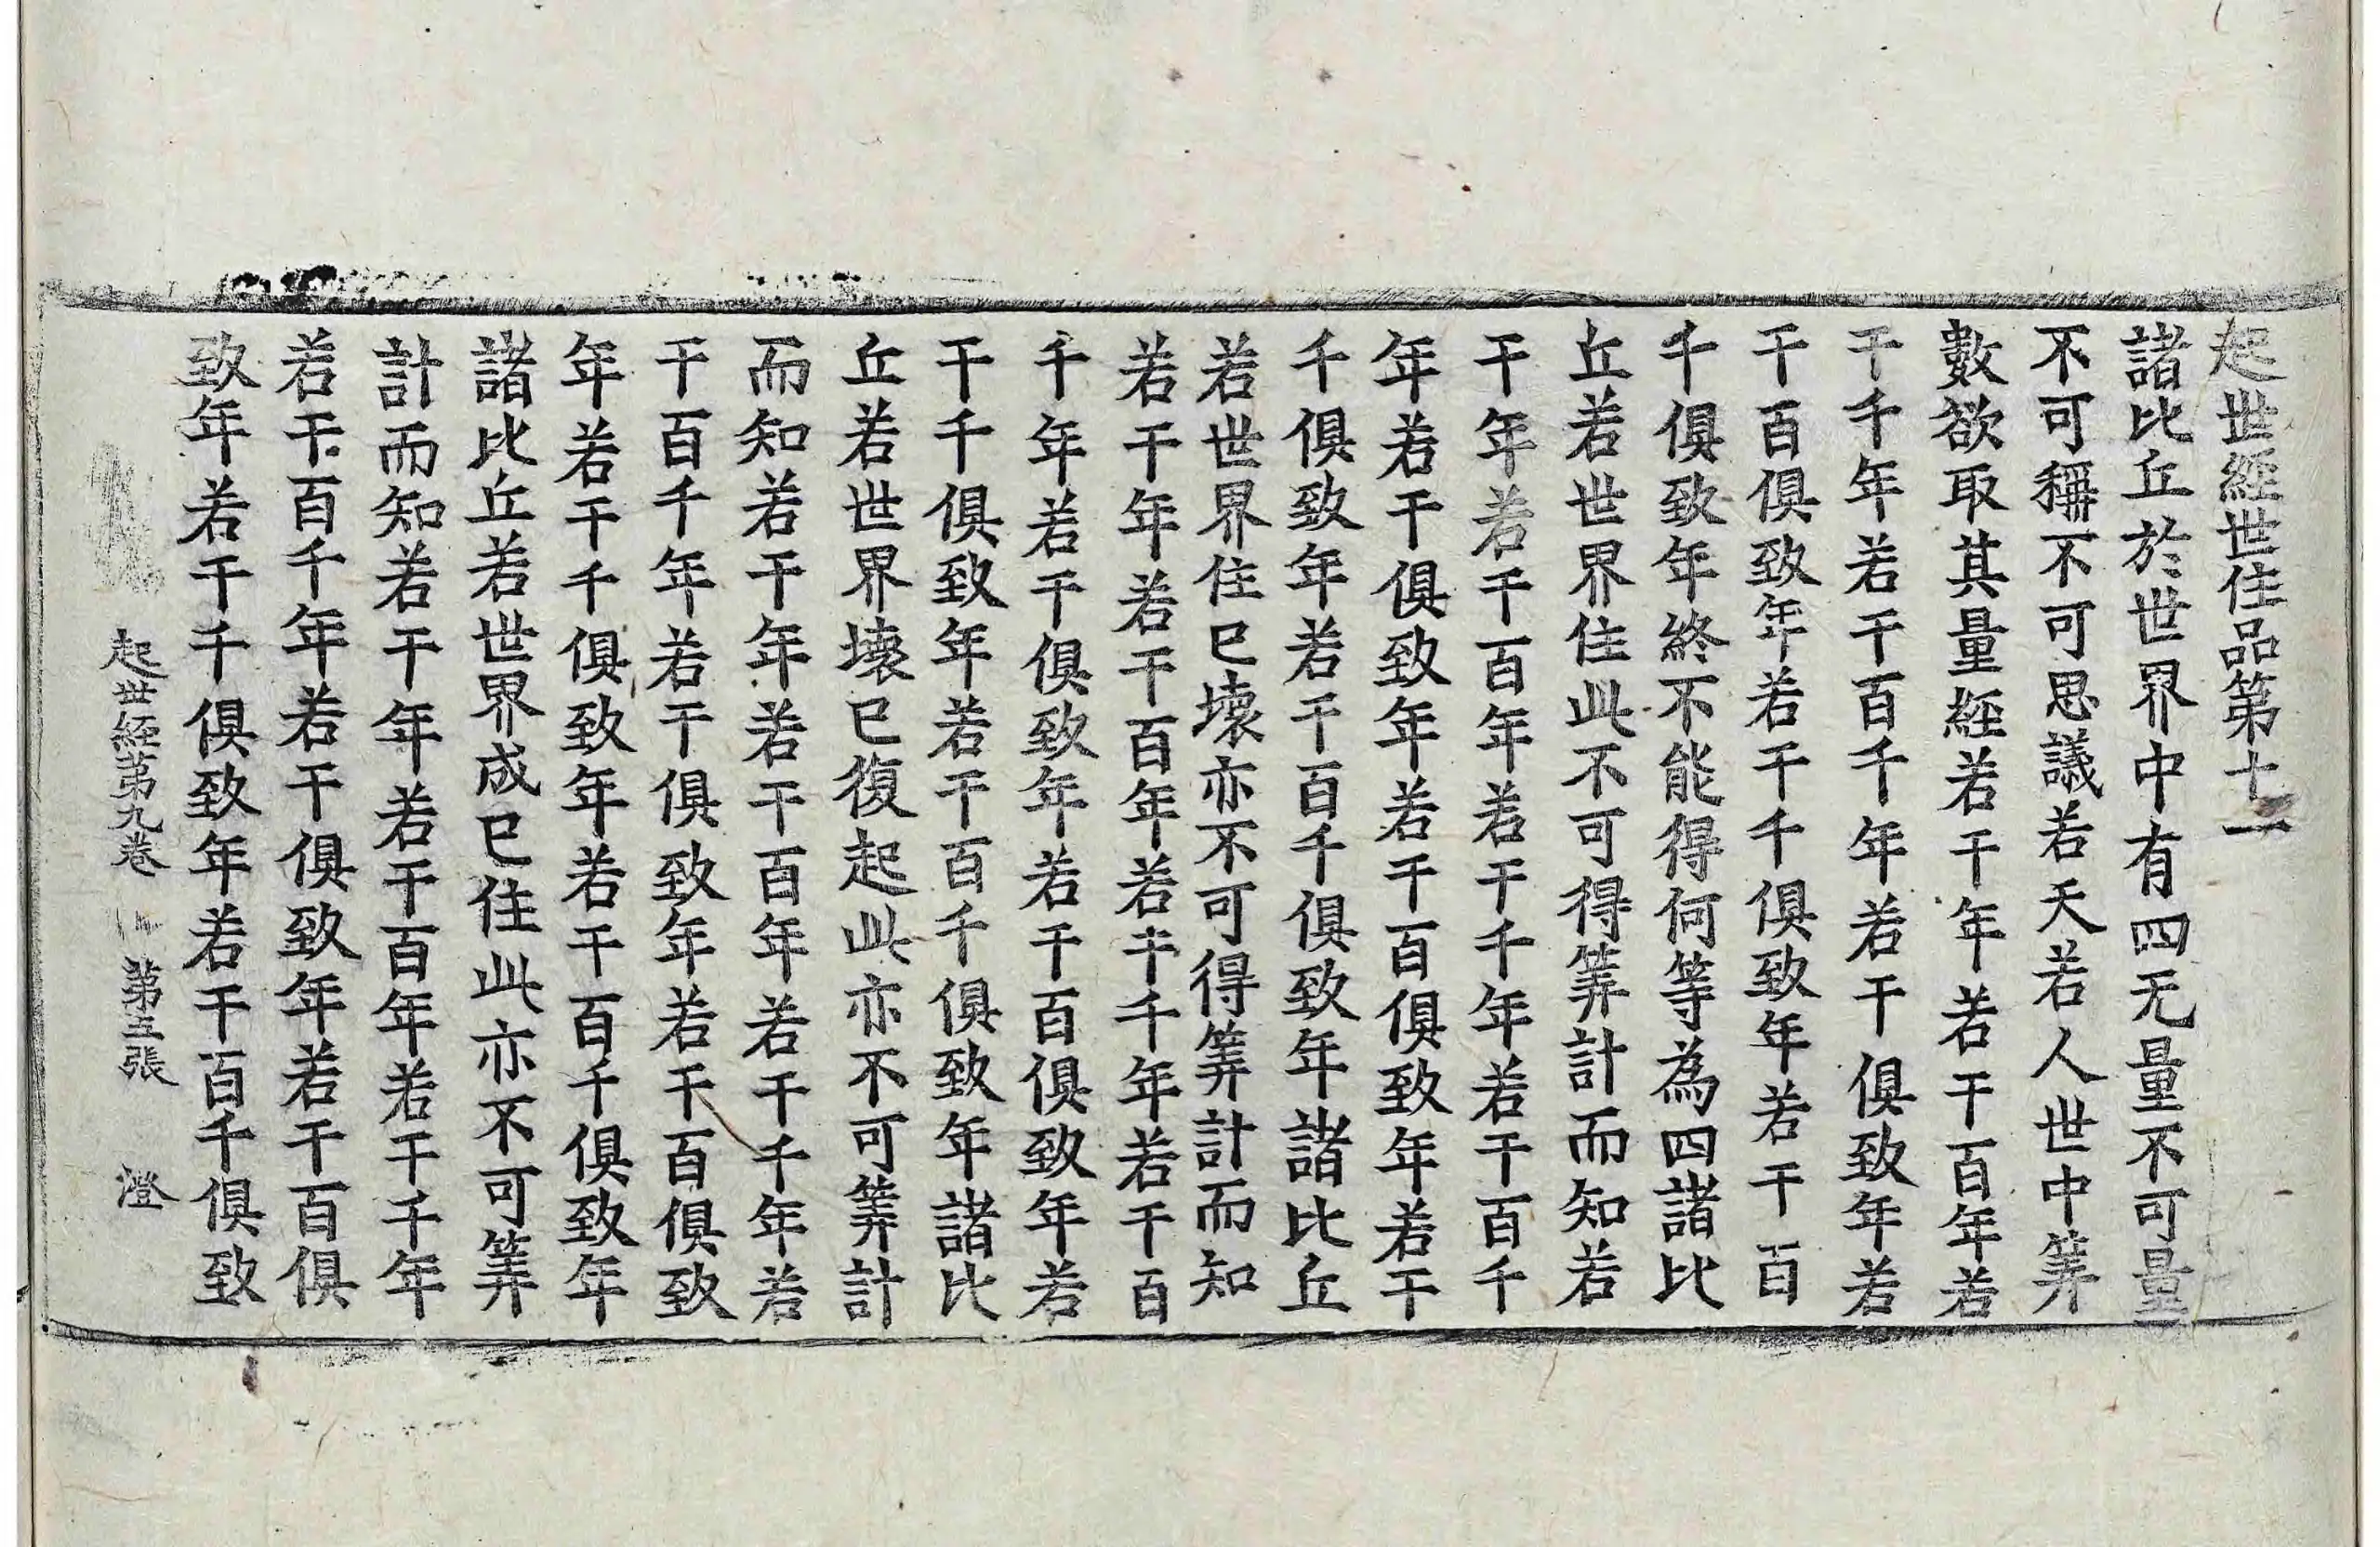 起世經世住品第十一
諸比丘於世界中有四无量不可量
不可稱不可思議若天若人世中筭
數欲取其量經若干年若干百年若
干千年若干百千年若干俱致年若
干百俱致年若干千俱致年若干百
千俱致年終不能得何等為四諸比
丘若世界住此不可得筭計而知若
干年若干百年若干千年若干百千
年若干俱致年若干百俱致年若干
千俱致年若干百千俱致年諸比丘
若世界住已壞亦不可得筭計而知
若干年若干百年若干千年若干百
千年若干俱致年若干百俱致年若
干千俱致年若干百千俱致年諸比
丘若世界壞已復起此亦不可筭計
而知若干年若干百年若干千年若
干百千年若干俱致年若干百俱致
年若干千俱致年若干百千俱致年
諸比丘若世界成已住此亦不可筭
計而知若干年若干百年若干千年
若干百千年若干俱致年若干百俱
致年若干千俱致年若干百千俱致
起世經第九卷 第三張 澄